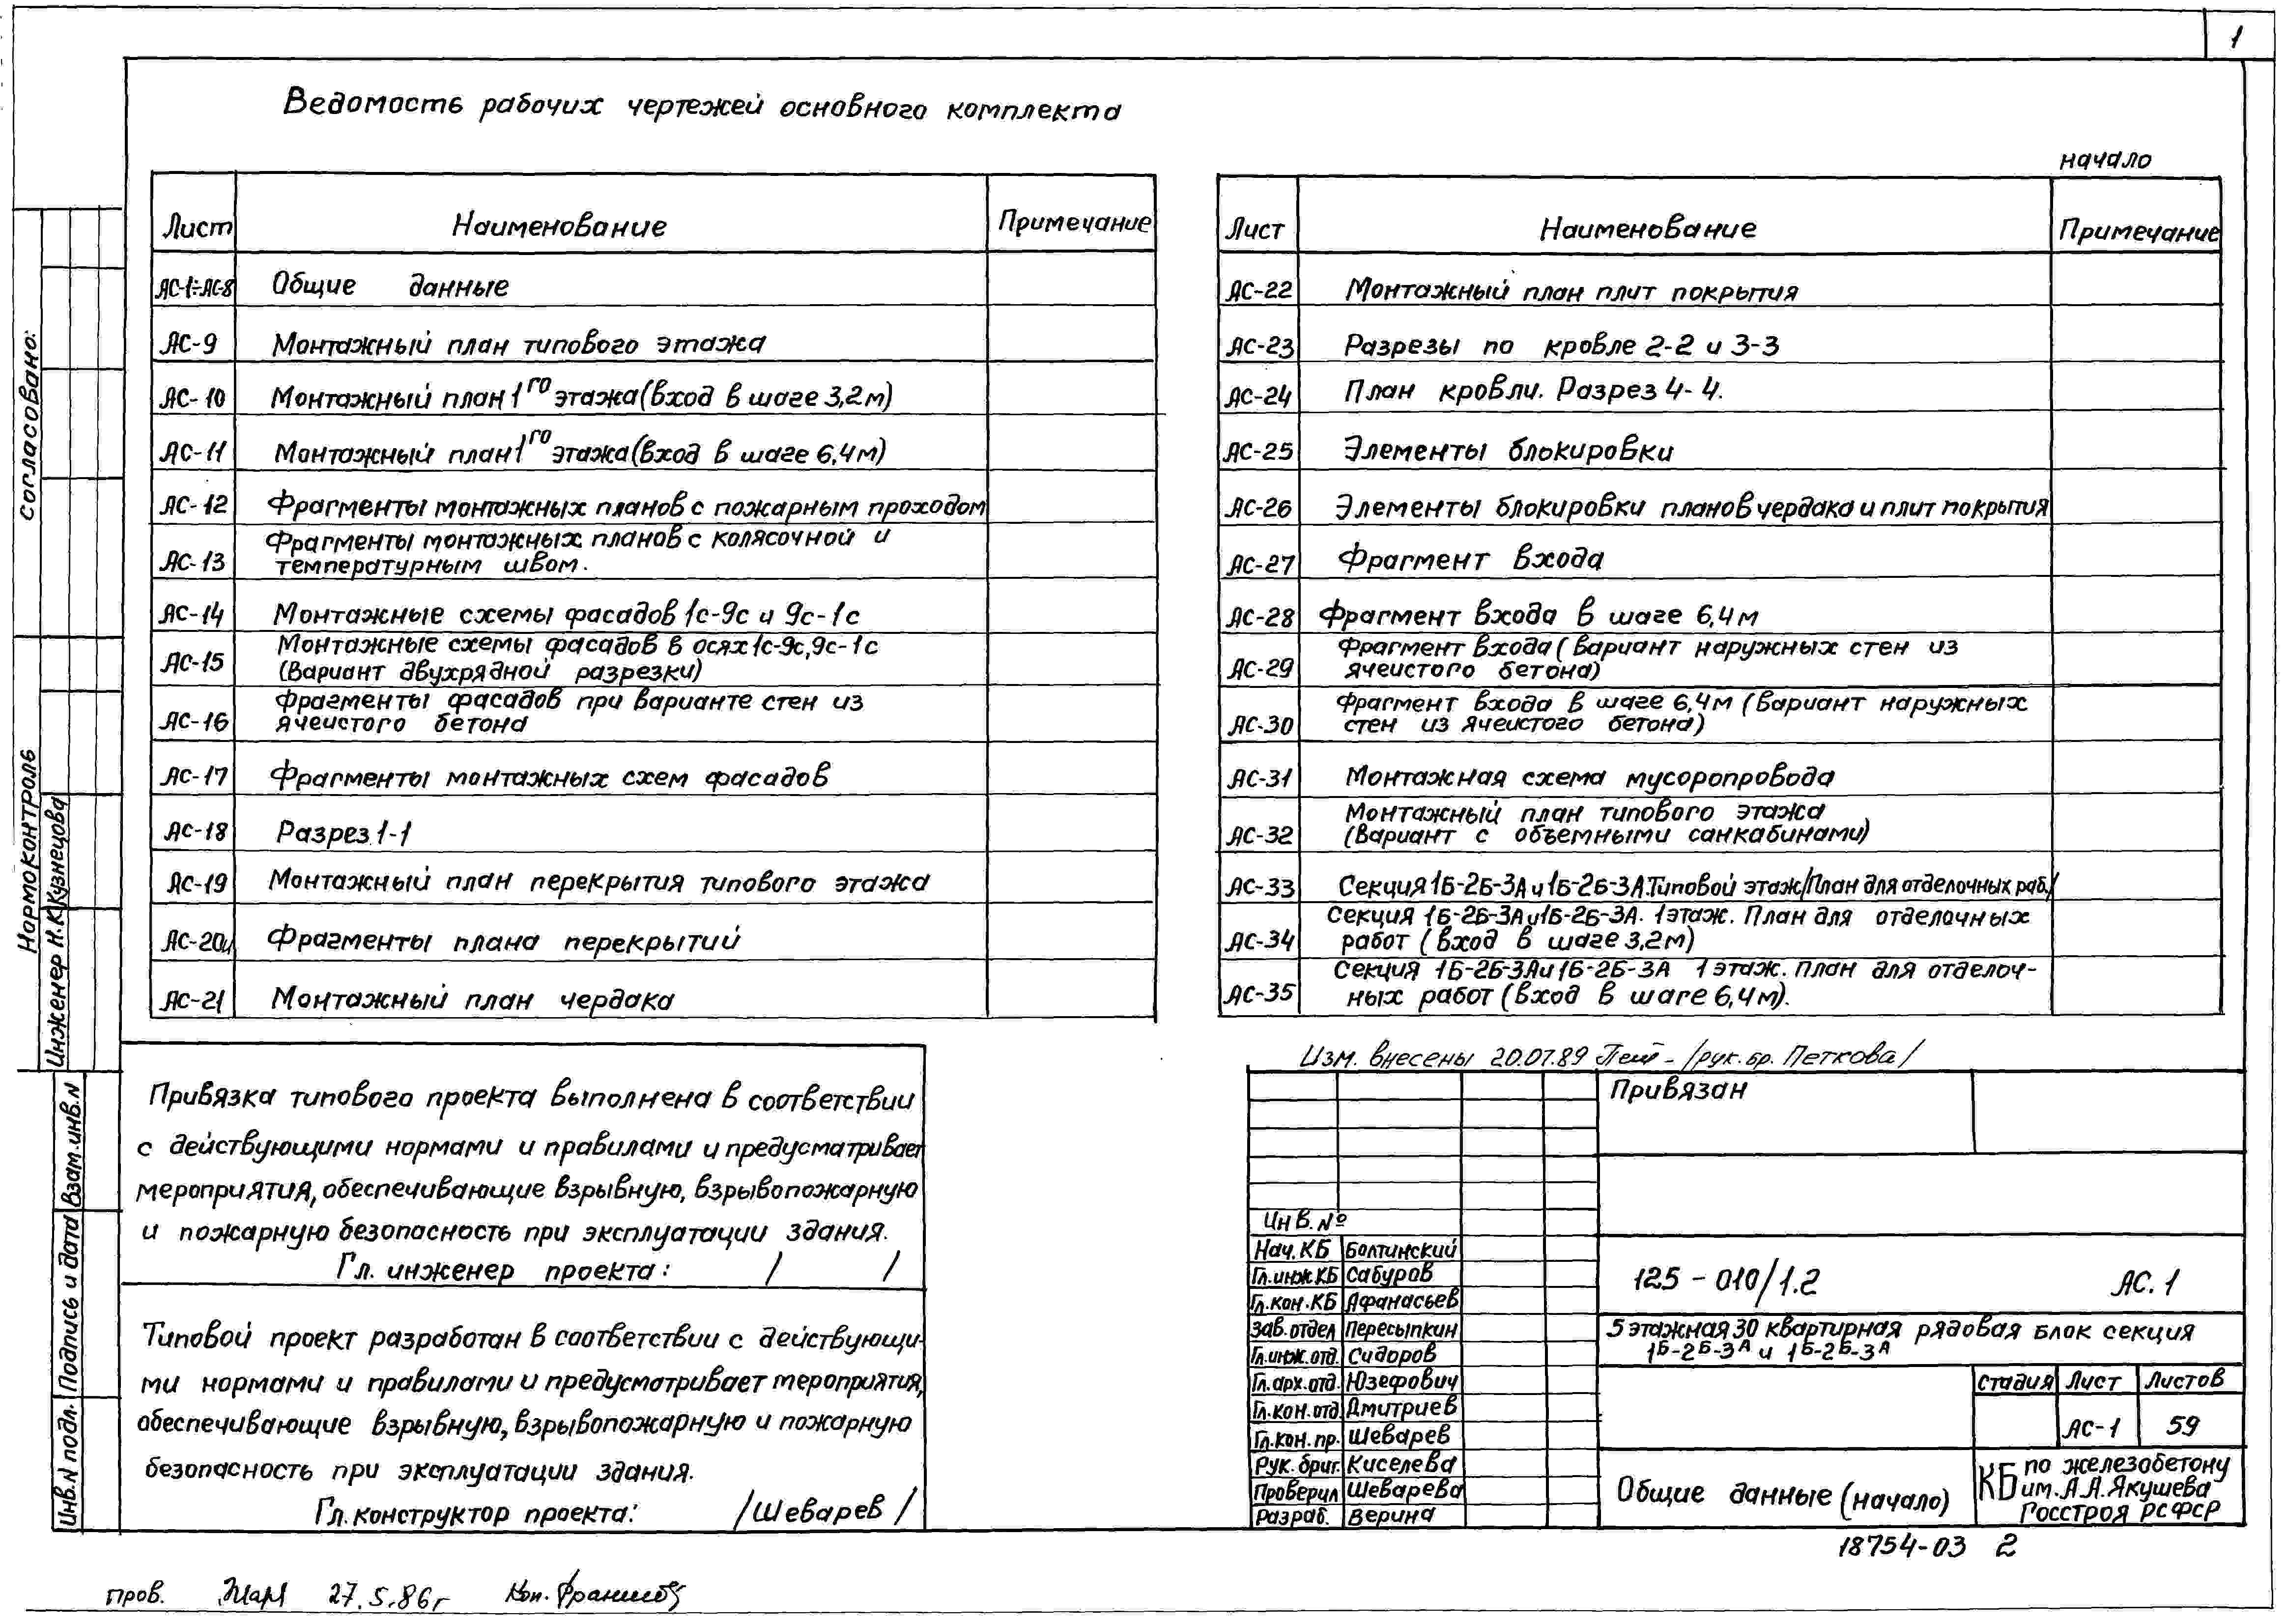 1
Ведомость рабочих чертежей основного комплекта
начало
Лист Наименование Примечание
АС-1÷АС-8 Общие данные
АС-9 Монтажный план типового этажа
АС-10 Монтажный план 1го этажа (вход в шаге 3,2м)
АС-11 Монтажный план 1го этажа (вход в шаге 6,4м)
АС-12 Фрагменты монтажных планов с пожарным проходом
АС-13 Фрагменты монтажных планов с колясочной и
температурным швом.
АС-14 Монтажные схемы фасадов 1с-9с и 9с-1с
АС-15 Монтажные схемы фасадов в осях 1с-9с, 9с-1с
(Вариант двухрядной разрезки)
АС-16 Фрагменты фасадов при варианте стен из
ячеистого бетона
АС-17 Фрагменты монтажных схем фасадов
АС-18 Разрез 1-1
АС-19 Монтажный план перекрытия типового этажа
АС-20и Фрагменты плана перекрытий
АС-21 Монтажный план чердака
Лист Наименование Примечание
АС-22 Монтажный план плит покрытия
АС-23 Разрезы по кровле 2-2 и 3-3
АС-24 План кровли. Разрез 4-4.
АС-25 Элементы блокировки
АС-26 Элементы блокировки планов чердака и плит покрытия
АС-27 Фрагмент входа
АС-28 Фрагмент входа в шаге 6,4м
АС-29 Фрагмент входа (вариант наружных стен из
ячеистого бетона)
АС-30 Фрагмент входа в шаге 6,4м (вариант наружных
стен из ячеистого бетона)
АС-31 Монтажная схема мусоропровода
АС-32 Монтажный план типового этажа
(Вариант с объемными санкабинами)
АС-33 Секция 1Б-2Б-3А и 1Б-2Б-3А. Типовой этаж /План для отделочных раб./
АС-34 Секция 1Б-2Б-3А и 1Б-2Б-3А. 1 этаж. План для отделочных
работ (вход в шаге 3,2м)
АС-35 Секция 1Б-2Б-3А и 1Б-2Б-3А 1 этаж. План для отделоч-
ных работ (вход в шаге 6,4м).
согласовано:
Нормоконтроль
Инженер Н.К. Кузнецова
Взам.инв.N
Подпись и дата
Инв.N подл.
Привязка типового проекта выполнена в соответствии
с действующими нормами и правилами и предусматривает
мероприятия, обеспечивающие взрывную, взрывопожарную
и пожарную безопасность при эксплуатации здания.
Гл. инженер проекта: / /
Типовой проект разработан в соответствии с действующи-
ми нормами и правилами и предусматривает мероприятия,
обеспечивающие взрывную, взрывопожарную и пожарную
безопасность при эксплуатации здания.
Гл. конструктор проекта: /Шеварев/
Изм. внесены 20.07.89 /рук. бр. Петкова/
Привязан
Инв. №
Нач. КБ Болтинский
Гл.инж КБ Сабуров
Гл.кон.КБ Афанасьев
Зав.отдел Пересыпкин
Гл.инж.отд. Сидоров
Гл.арх.отд. Юзефович
Гл.кон.отд Дмитриев
Гл.кон.пр. Шеварев
Рук.бриг. Киселева
Проверил Шеварева
Разраб. Верина
125-010/1.2 АС.1
5 этажная 30 квартирная рядовая блок секция
1Б-2Б-3А и 1Б-2Б-3А
стадия Лист Листов
АС-1 59
Общие данные (начало)
КБ по железобетону
им. А.А.Якушева
Госстроя РСФСР
18754-03 2
пров. 27.5.86г Коп.